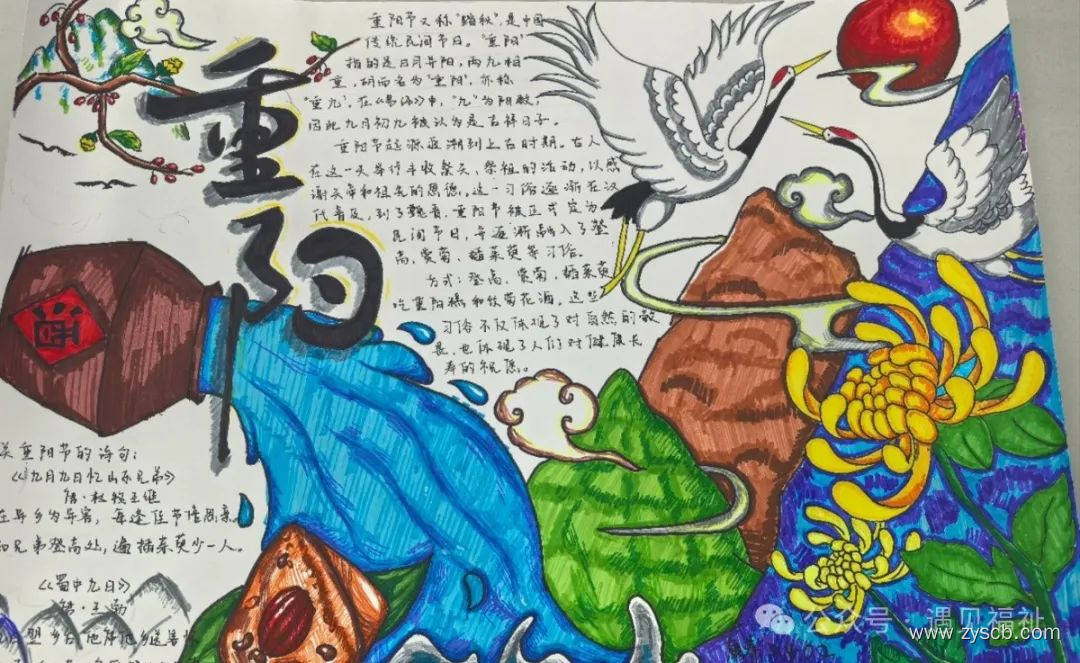 重阳
重阳节又称"踏秋",是中国
传统民间节日。"重阳"
指的是日月异阳,两九相
重,故而名为"重阳",亦称
"重九",在《易经》中,"九"为阳数,
因此九月初九被认为是吉祥日子。
重阳节起源追溯到上古时期。古人
在这一天举行丰收祭天、祭祖的活动,以感
谢天帝和祖先的恩德,这一习俗逐渐在汉
代普及,到了魏晋,重阳节被正式定为
民间节日,并逐渐融入了登
高、赏菊、插茱萸等习俗。
方式:登高、赏菊、插茱萸
吃重阳糕和饮菊花酒,这些
习俗不仅体现了对自然的敬
畏,也体现了人们对健康长
寿的祝愿。
酒
关重阳节的诗句:
《九月九日忆山东兄弟》
唐·王维
在异乡为异客,每逢佳节倍思亲。
知兄弟登高处,遍插茱萸少一人。
《蜀中九日》
唐·王勃
公众号·遇见福祉
www.zyscb.com